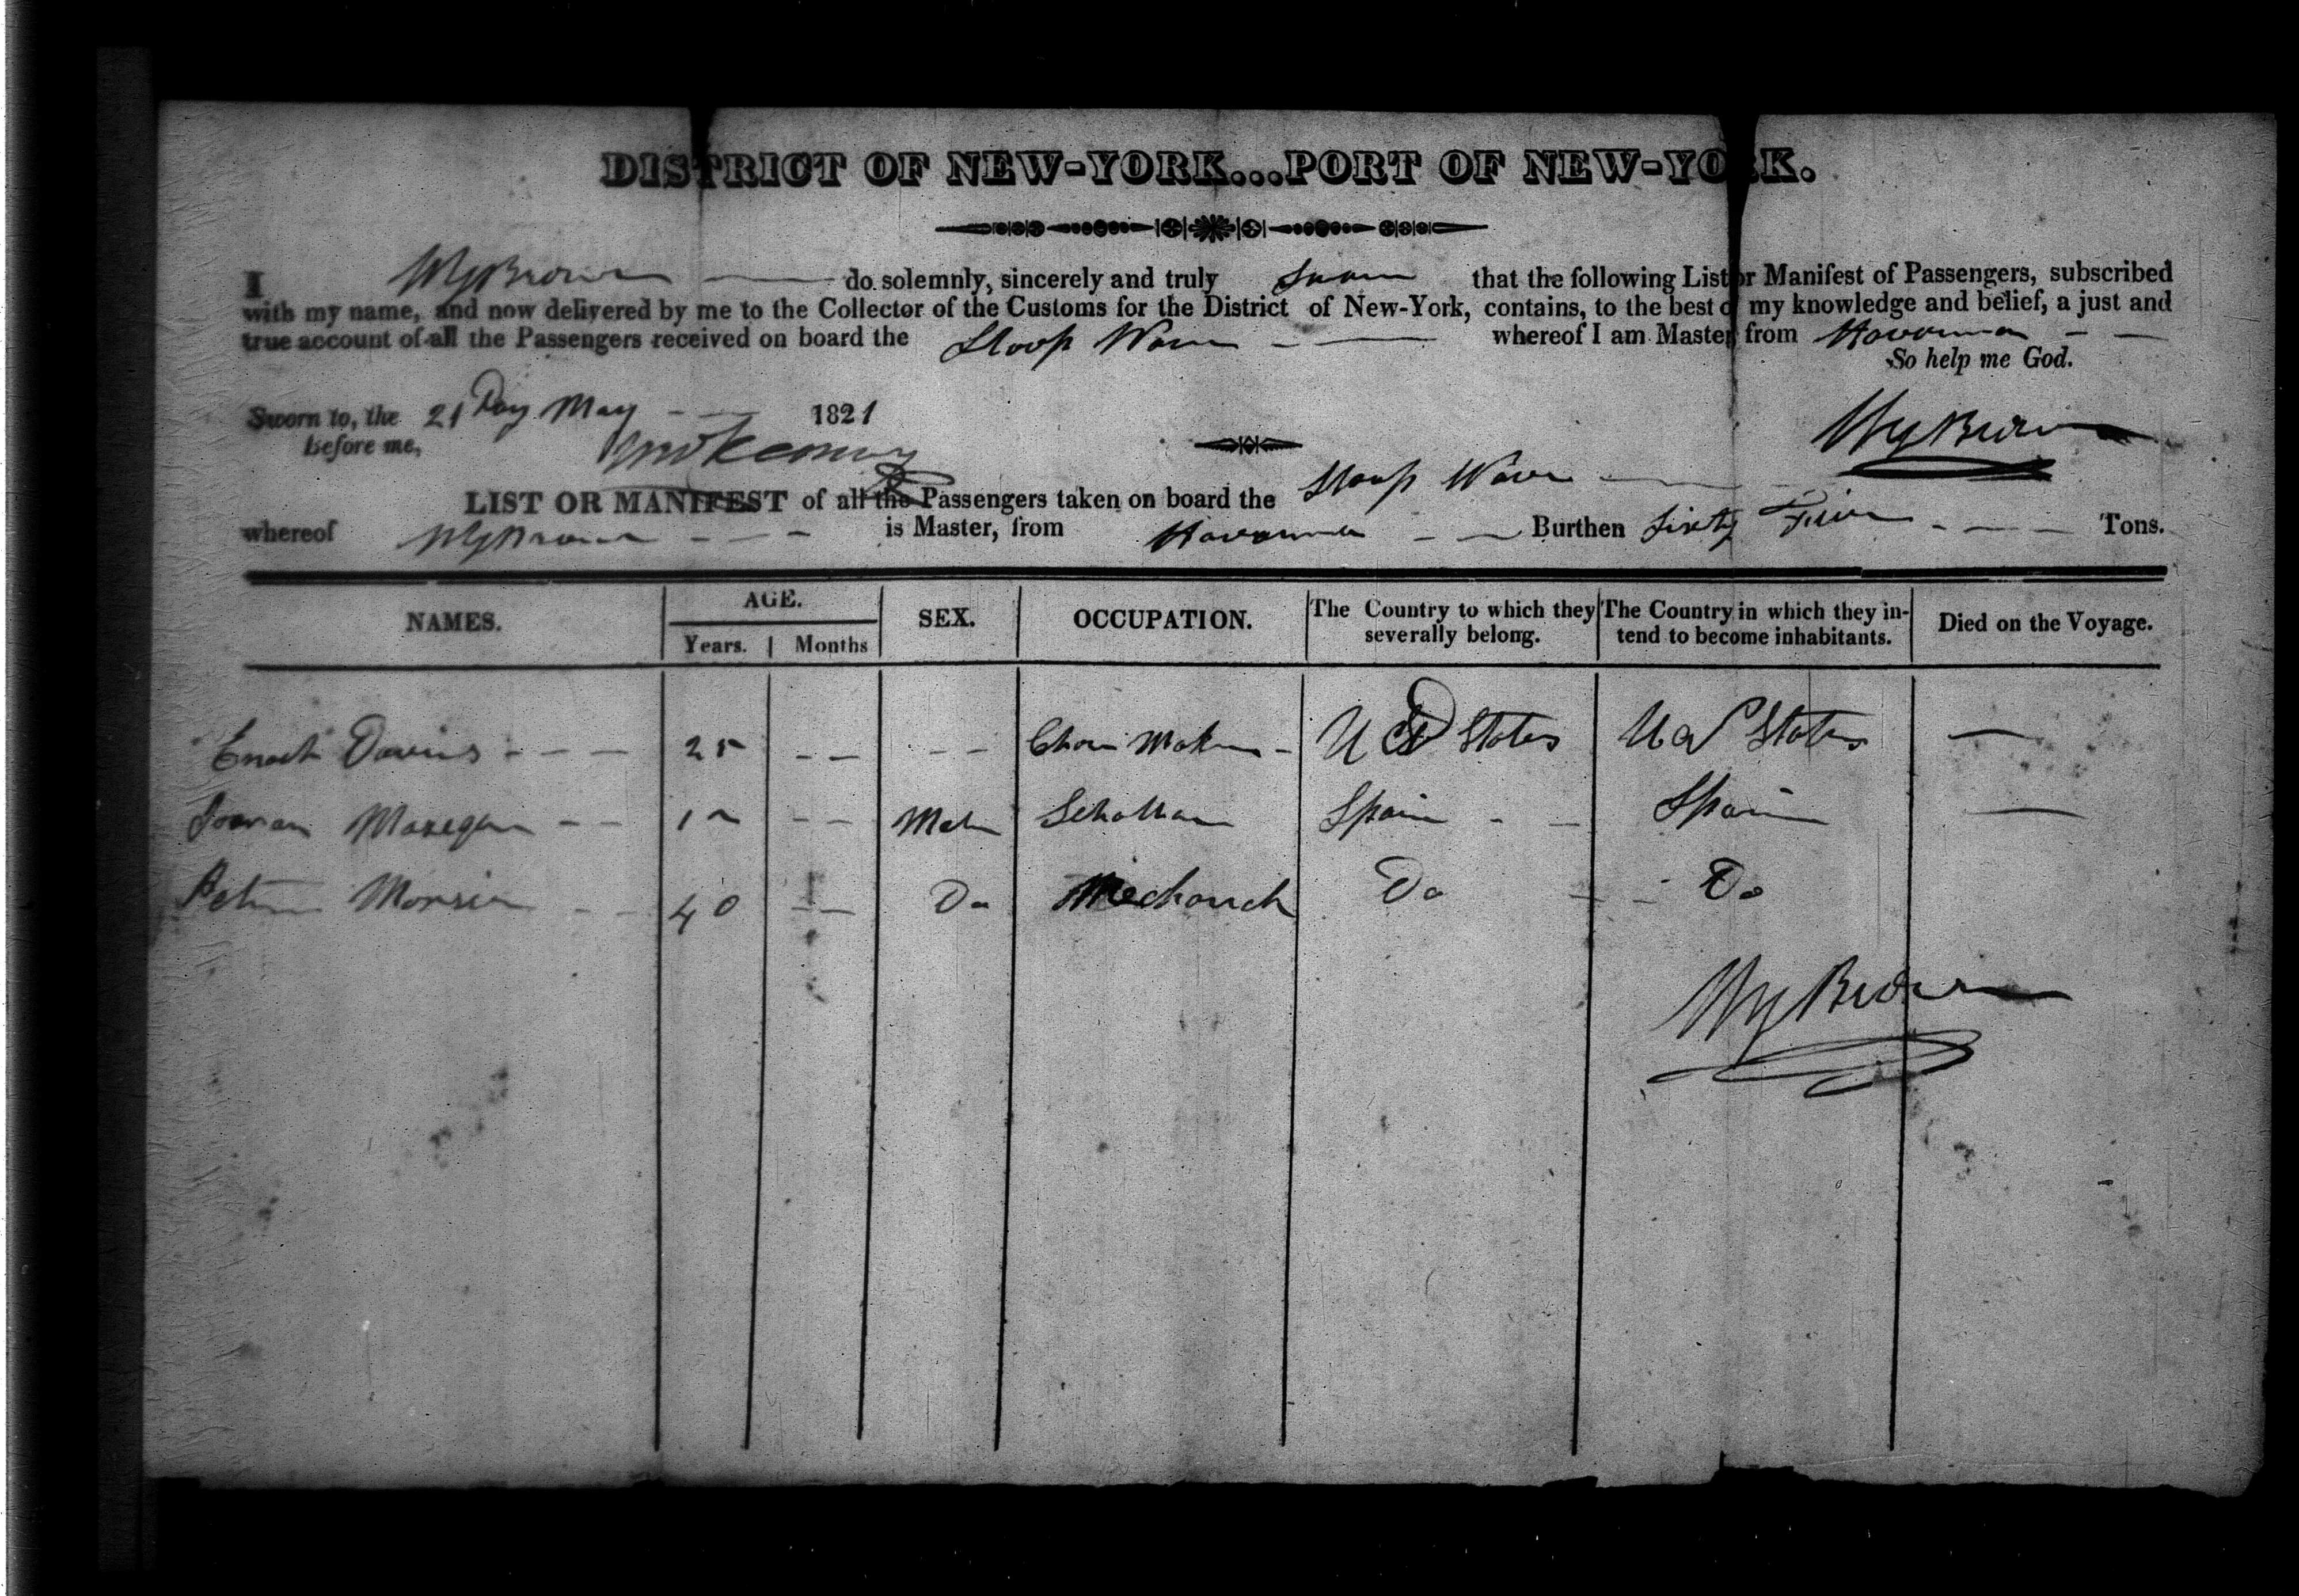 DISTRICT OF NEW-YORK...PORT OF NEW-YORK.
I Wm Brown do solemnly, sincerely and truly Swear that the following List or Manifest of Passengers, subscribed
with my name, and now delivered by me to the Collector of the Customs for the District of New-York, contains, to the best of my knowledge and belief, a just and
true account of all the Passengers received on board the Sloop whereof I am Master from Havanna
So help me God.
Sworn to, the 21 Day May 1821
Before me,
Brown
LIST OR MANIFEST of all the Passengers taken on board the Sloop
whereof Brown is Master, from Havanna Burthen Sixty Tons.
NAMES. AGE. SEX. OCCUPATION. The Country to which they severally belong. The Country in which they intend to become inhabitants. Died on the Voyage.
Years. Months
Enoch 25 Chair Maker U States U States
Male Spain Spain
40 Do Mechanick Do Do
Brown